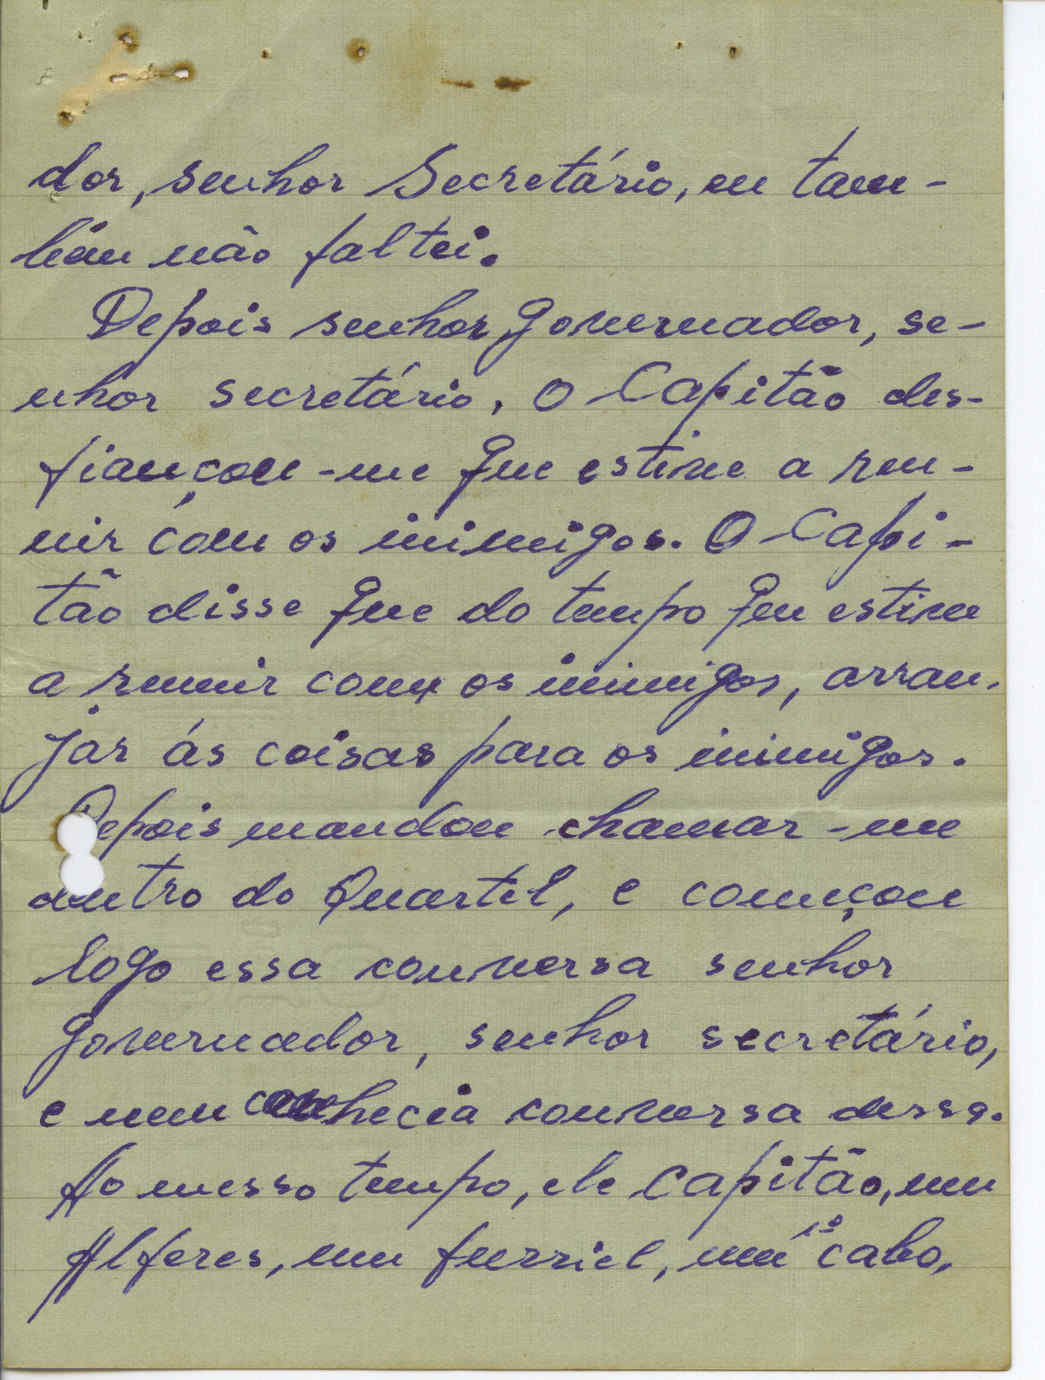 dor, senhor Secretário, eu tam-
bém não faltei.
Depois senhor Governador, se-
nhor secretário, O Capitão des-
fiançou-me que estive a reu-
nir com os inimigos. O Capi-
tão disse que do tempo que estive
a reunir com os inimigos, arran-
jar ás coisas para os inimigos.
Depois mandou chamar-me
dentro do Quartel, e começou
logo essa conversa senhor
Governador, senhor secretário,
e nem conhecia conversa dessa.
Ao messo tempo, ele capitão, um
Alferes, um furriel, um 1º cabo,